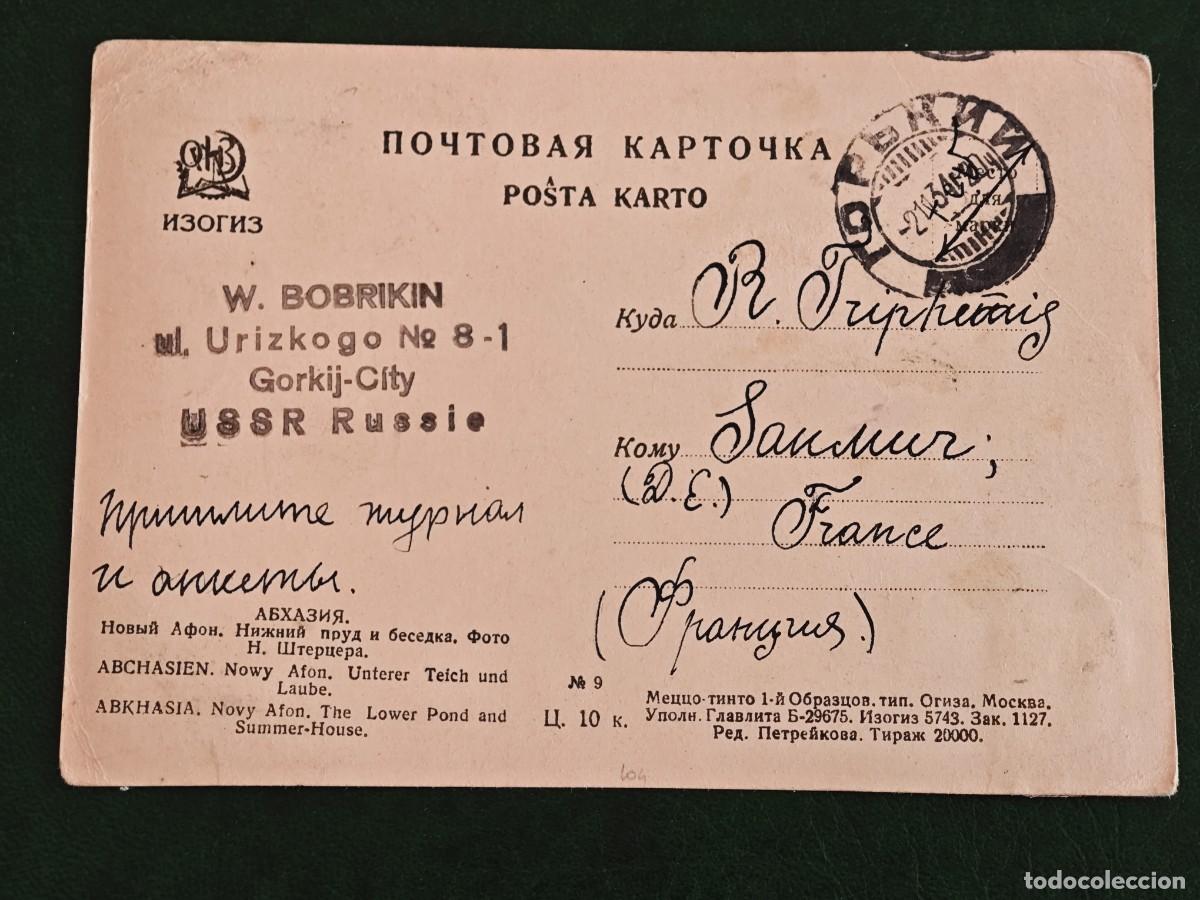 ПОЧТОВАЯ КАРТОЧКА
POŜTA KARTO
ОГИЗ
ИЗОГИЗ
ГОРЬКИЙ
Место
для
марки
W. BOBRIKIN
ul. Urizkogo № 8-1
Gorkij-City
USSR Russie
Пришлите журнал
и анкеты.
АБХАЗИЯ.
Новый Афон. Нижний пруд и беседка. Фото
Н. Штерцера.
ABCHASIEN. Nowy Afon. Unterer Teich und
Laube.
ABKHASIA. Novy Afon. The Lower Pond and
Summer-House.
Куда R.
Кому
(D. E.)
France
(Франция.)
№ 9
Ц. 10 к.
Меццо-тинто 1-й Образцов. тип. Огиза. Москва.
Уполн. Главлита Б-29675. Изогиз 5743. Зак. 1127.
Ред. Петрейкова. Тираж 20000.
104
todocoleccion